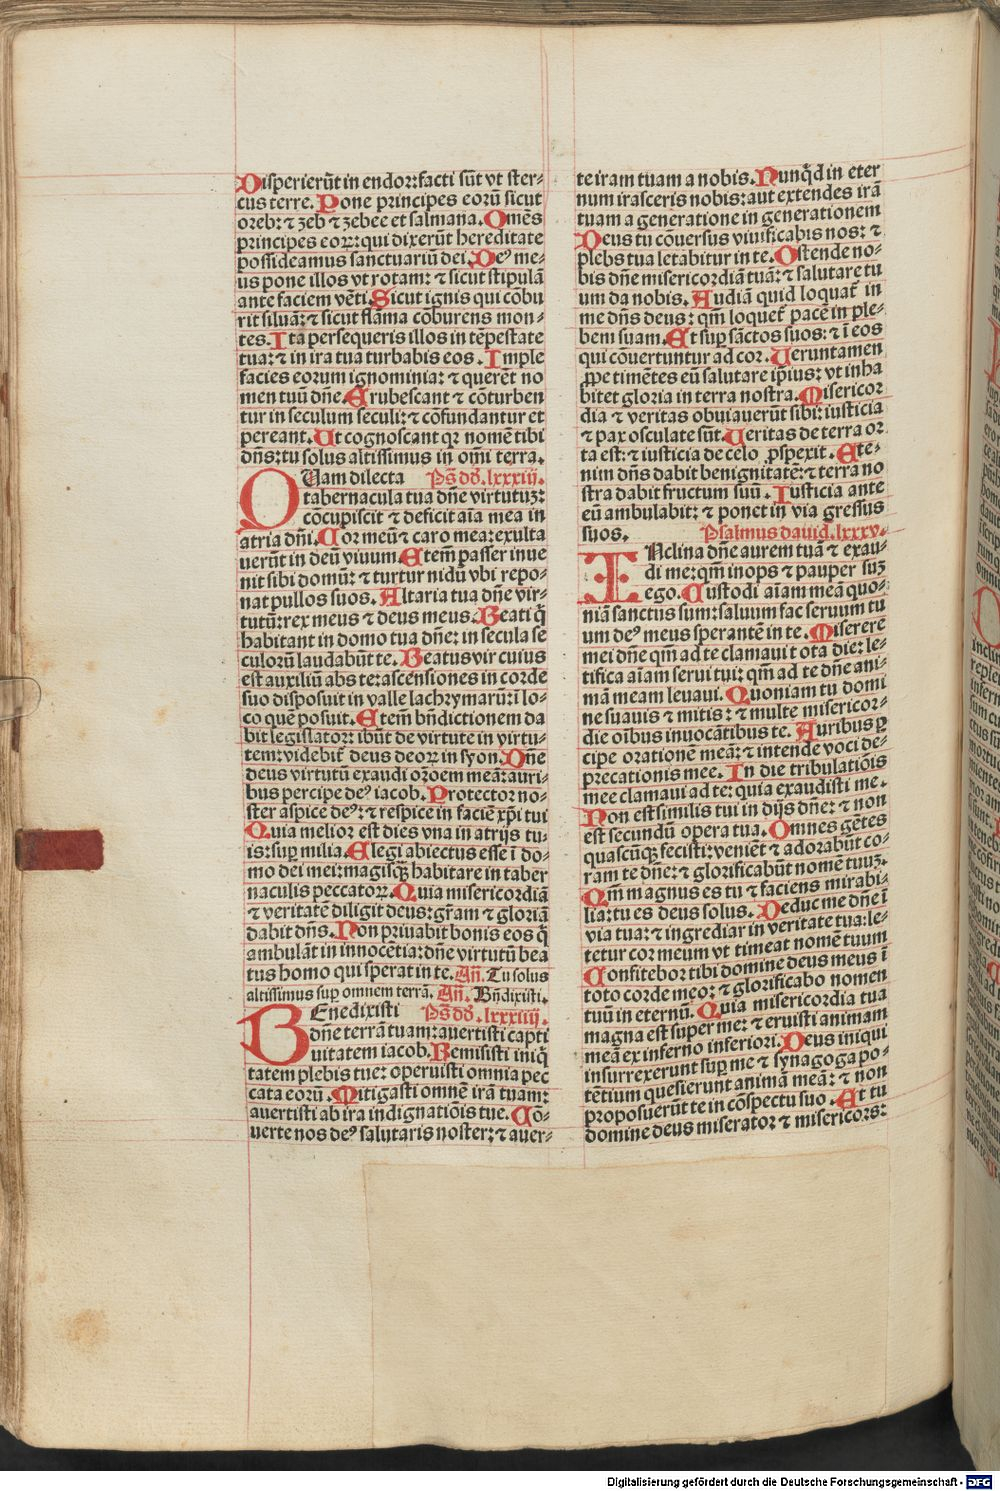 Disperierūt in endor: facti sūt vt ster-
cus terre. Pone principes eorū sicut
oreb: ⁊ zeb ⁊ zebee et salmana. Omēs
principes eoꝝ: qui dixerūt hereditate
possideamus sanctuariū dei. Deꝰ me-
us pone illos vt rotam: ⁊ sicut stipulā
ante faciem vēti. Sicut ignis qui cōbu
rit siluā: ⁊ sicut flāma cōburens mon-
tes. Ita persequeris illos in tēpestate
tua: ⁊ in ira tua turbabis eos. Imple
facies eorum ignominia: ⁊ querēt no
men tuū dn̄e. Erubescant ⁊ cōturben
tur in seculum seculi: ⁊ cōfundantur et
pereant. Ut cognoscant qꝛ nomē tibi
dn̄s: tu solus altissimus in om̄i terra.
QUam dilecta Ps̄ dd̄. lxxxiij.
tabernacula tua dn̄e virtutuꝫ:
cōcupiscit ⁊ deficit aīa mea in
atria dn̄i. Cor meū ⁊ caro mea: exulta
uerūt in deū viuum. Etem̄ passer inue
nit sibi domū: ⁊ turtur nidū vbi repo-
nat pullos suos. Altaria tua dn̄e vir-
tutū: rex meus ⁊ deus meus. Beati q̄
habitant in domo tua dn̄e: in secula se
culorū laudabūt te. Beatus vir cuius
est auxiliū abs te: ascensiones in corde
suo disposuit in valle lachrymarū: ī lo-
co quē posuit. Etem̄ bn̄dictionem da
bit legislator: ibūt de virtute in virtu-
tem: videbit̄ deus deoꝝ in syon. Dn̄e
deus virtutū exaudi or̄oem meā: auri-
bus percipe deꝰ iacob. Protector no-
ster aspice deꝰ: ⁊ respice in faciē xp̄i tui
Quia melior est dies vna in atrijs tu-
is: suꝑ milia. Elegi abiectus esse ī do-
mo dei mei: magisqꝫ habitare in taber
naculis peccatoꝝ. Quia misericordiā
⁊ veritatē diligit deus: gr̄am ⁊ gloriā
dabit dn̄s. Non priuabit bonis eos q̄
ambulāt in innocētia: dn̄e virtutū bea
tus homo qui sperat in te. Añ. Tu solus
altissimus suꝑ omnem terrā. Añ. Bn̄dixisti.
BEnedixisti Ps̄ dd̄. lxxxiiij.
dn̄e terrā tuam: auertisti capti
uitatem iacob. Remisisti iniq̄
tatem plebis tue: operuisti omnia pec
cata eorū. Mitigasti omnē irā tuam:
auertisti ab ira indignatiōis tue. Cō-
uerte nos deꝰ salutaris noster: ⁊ auer-
te iram tuam a nobis. Nunqͥd in eter
num irasceris nobis: aut extendes irā
tuam a generatione in generationem
Deus tu cōuersus viuificabis nos: ⁊
plebs tua letabitur in te. Ostende no-
bis dn̄e misericordiā tuā: ⁊ salutare tu
um da nobis. Audiā quid loquat̄ in
me dn̄s deus: qm̄ loquet̄ pacē in ple-
bem suam. Et suꝑ sāctos suos: ⁊ ī eos
qui cōuertuntur ad cor. Ueruntamen
ꝓpe timētes eū salutare ip̄ius: vt inha
bitet gloria in terra nostra. Misericor
dia ⁊ veritas obuiauerūt sibi: iusticia
⁊ pax osculate sūt. Ueritas de terra or
ta est: ⁊ iusticia de celo ꝓspexit. Ete-
nim dn̄s dabit benignitatē: ⁊ terra no
stra dabit fructum suū. Iusticia ante
eū ambulabit: ⁊ ponet in via gressus
suos. Psalmus dauid. lxxxv.
INclina dn̄e aurem tuā ⁊ exau-
di me: qm̄ inops ⁊ pauper suꝫ
ego. Custodi aīam meā quo-
niā sanctus sum: saluum fac seruum tu
um deꝰ meus sperantē in te. Miserere
mei dn̄e qm̄ ad te clamaui tota die: le-
tifica aīam serui tui: qm̄ ad te dn̄e ani-
mā meam leuaui. Quoniam tu domi
ne suauis ⁊ mitis: ⁊ multe misericor-
die oībus inuocātibus te. Auribus ꝑ
cipe orationē meā: ⁊ intende voci de-
precationis mee. In die tribulatiōis
mee clamaui ad te: quia exaudisti me.
Non est similis tui in dijs dn̄e: ⁊ non
est secundū opera tua. Omnes gētes
quascūqꝫ fecisti: veniēt ⁊ adorabūt co-
ram te dn̄e: ⁊ glorificabūt nomē tuuꝫ.
Qm̄ magnus es tu ⁊ faciens mirabi-
lia: tu es deus solus. Deduc me dn̄e ī
via tua: ⁊ ingrediar in veritate tua: le-
tetur cor meum vt timeat nomē tuum
Confitebor tibi domine deus meus ī
toto corde meo: ⁊ glorificabo nomen
tuū in eternū. Quia misericordia tua
magna est super me: ⁊ eruisti animam
meā ex inferno inferiori. Deus iniqui
insurrexerunt suꝑ me ⁊ synagoga po-
tētium quesierunt animā meā: ⁊ non
proposuerūt te in cōspectu suo. Et tu
domine deus miserator ⁊ misericors:
Digitalisierung gefördert durch die Deutsche Forschungsgemeinschaft - DFG